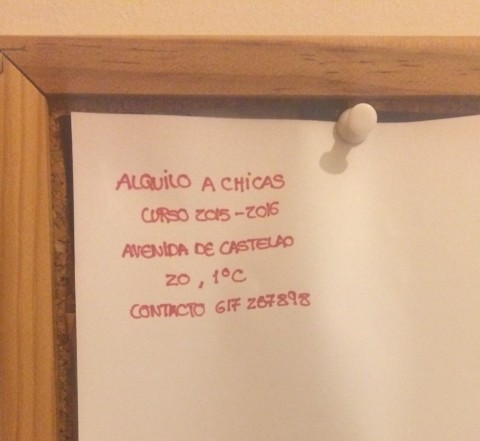 ALQUILO A CHICAS
CURSO 2015-2016
AVENIDA DE CASTELAO
20, 1ºC
CONTACTO 617 287898